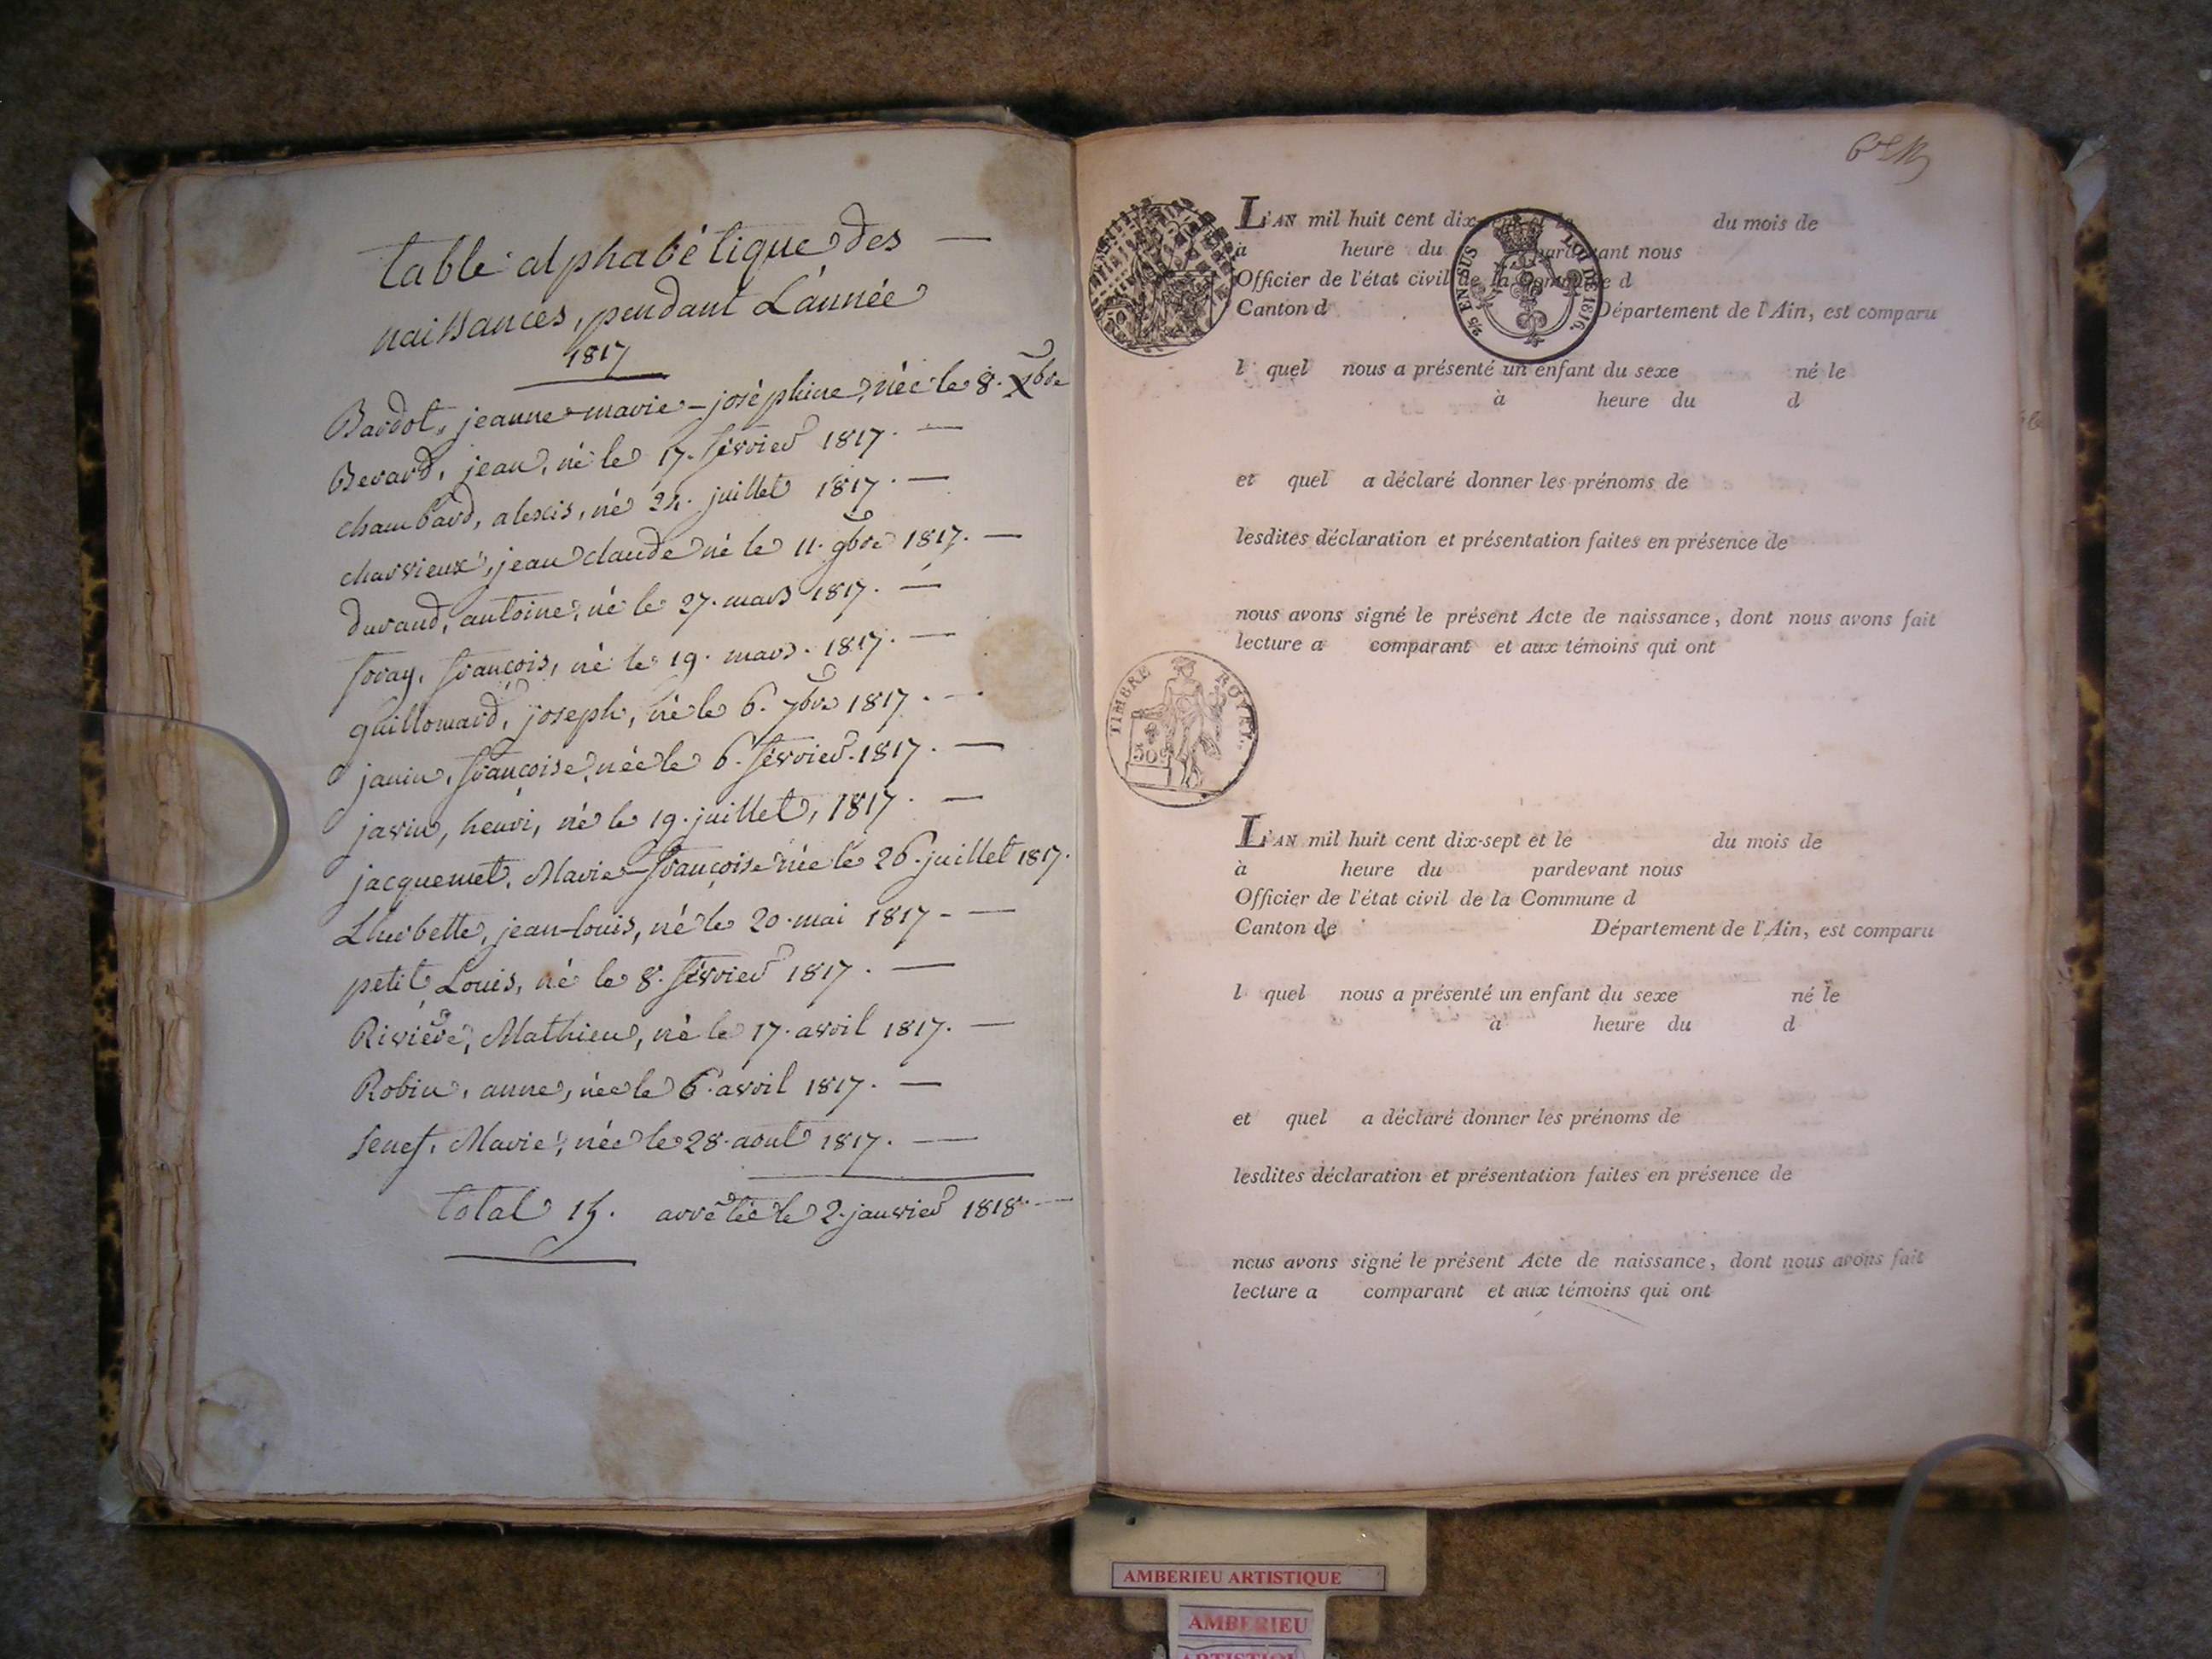 table alphabétique des —
naissances, pendant L'année
1817
Bardot, jeanne-marie-joséphine, née le 8. Xbre
Berard, jean, né le 17. février 1817. —
chambard, alexis, né 24. juillet 1817. —
charvieux, jean claude né le 11. 9bre 1817. —
durand, antoine, né le 27. mars 1817. —
foray, françois, né le 19. mars. 1817. —
guillomard, joseph, né le 6. 7bre 1817. —
janin, françoise, née le 6. février. 1817. —
javin, henri, né le 19. juillet, 1817. —
jacquemet, Marie-françoise née le 26. juillet 1817.
Lherbette, jean-louis, né le 20. mai 1817 - —
petit, Louis, né le 8. février 1817. —
Rivière, Mathieu, né le 17. avril 1817. —
Robin, anne, née le 6. avril 1817. —
Senef, Marie, née le 28. aout 1817. —
total 15. arrêtée le 2. janvier 1818. —
L'AN mil huit cent dix-sept et le du mois de
à heure du pardevant nous
Officier de l'état civil de la Commune d
Canton d Département de l'Ain, est comparu
l quel nous a présenté un enfant du sexe né le
à heure du d
et quel a déclaré donner les prénoms de
lesdites déclaration et présentation faites en présence de
nous avons signé le présent Acte de naissance, dont nous avons fait
lecture a comparant et aux témoins qui ont
2/5 EN SUS LOI DE 1816.
TIMBRE ROYAL
50c
L'AN mil huit cent dix-sept et le du mois de
à heure du pardevant nous
Officier de l'état civil de la Commune d
Canton de Département de l'Ain, est comparu
l quel nous a présenté un enfant du sexe né le
à heure du d
et quel a déclaré donner les prénoms de
lesdites déclaration et présentation faites en présence de
nous avons signé le présent Acte de naissance, dont nous avons fait
lecture a comparant et aux témoins qui ont
AMBERIEU ARTISTIQUE
AMBERIEU
ARTISTIQUE